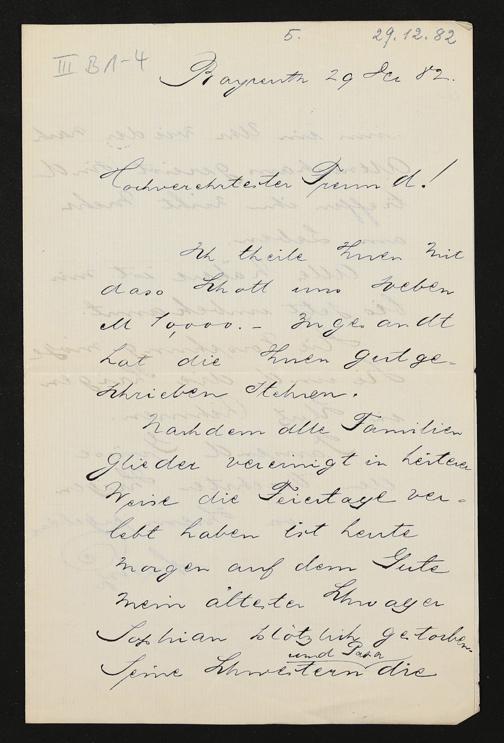 III B A-4
5.
29.12.82
Bayreuth 29 Dec 82.
Hochverehrtester Freund!
Ich theile Ihnen mit
dass Schott uns soeben
M 10,000.- zugesandt
hat die Ihnen gutge-
schrieben stehen.
Nachdem alle Familien
glieder vereinigt in heiterer
Weise die Feiertage ver-
lebt haben ist heute
Morgen auf dem Gute
mein ältester Schwager
plötzlich gestorben
und Papa
Seine Schwestern die